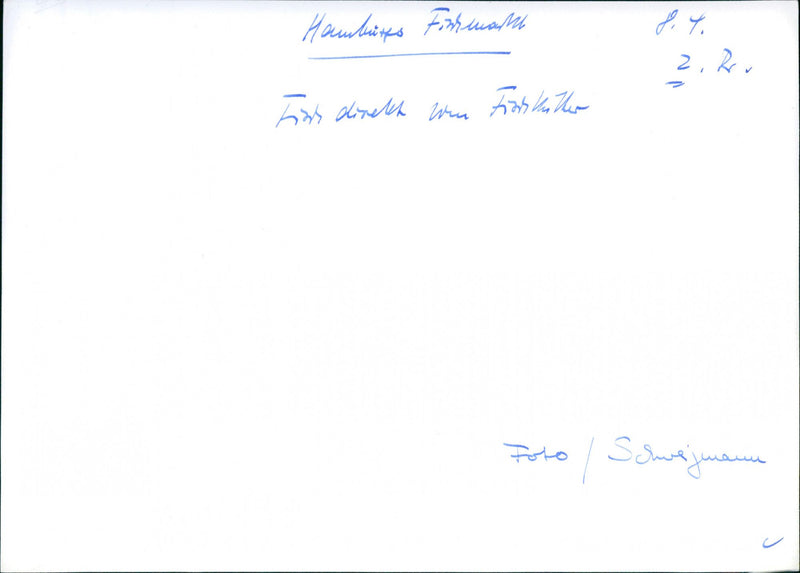 Hamburgs Fischmarkt
8. 4.
2. Rr.
Fisch direkt vom Fischkutter
Foto / Schweizmann